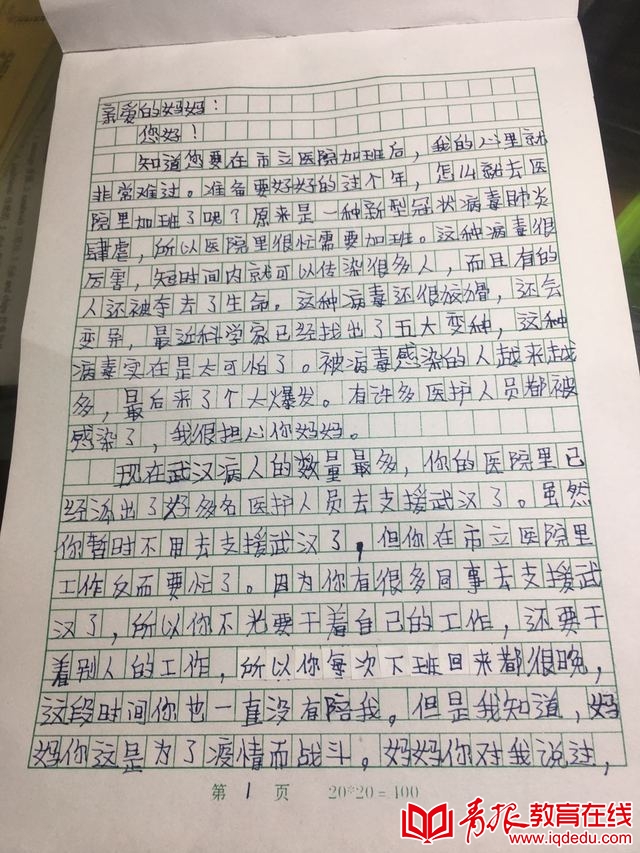 亲爱的妈妈：
您好！
知道您要在市立医院加班后，我的心里就
非常难过。准备要好好的过个年，怎么就去医
院里加班了呢？原来是一种新型冠状病毒肺炎
肆虐，所以医院里很忙需要加班。这种病毒很
厉害，短时间内就可以传染很多人，而且有的
人还被夺去了生命。这种病毒还很狡猾，还会
变异，最近科学家已经找出了五大变种，这种
病毒实在是太可怕了。被病毒感染的人越来越
多，最后来了个大爆发。有许多医护人员都被
感染了，我很担心你妈妈。
现在武汉病人的数量最多，你的医院里已
经派出了好多名医护人员去支援武汉了。虽然
你暂时不用去支援武汉了，但你在市立医院里
工作反而要忙了。因为你有很多同事去支援武
汉了，所以你不光要干着自己的工作，还要干
着别人的工作，所以你每次下班回来都很晚，
这段时间你也一直没有陪我。但是我知道，妈
妈你这是为了疫情而战斗。妈妈你对我说过，
第 1 页 20*20=400
青报教育在线
www.iqdedu.com